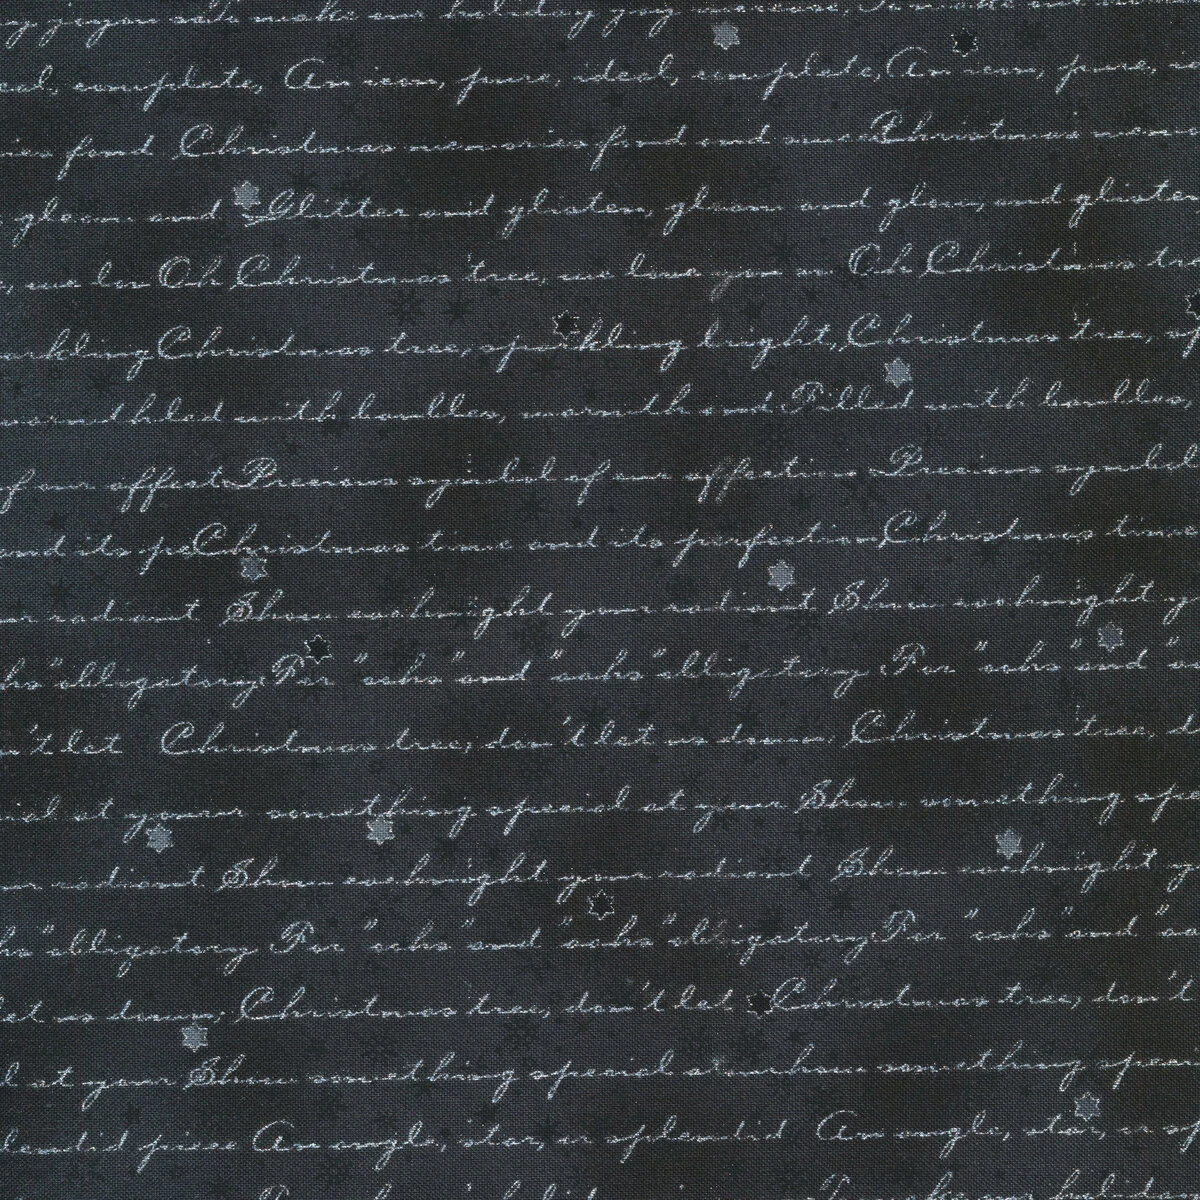 you to make our holiday joy increase, To make our
complete, An icon, pure, ideal, complete, An icon, pure,
fond Christmas memories fond and sweet Christmas
gleam and Glitter and glisten, gleam and glow, and glisten
, we lov Oh Christmas tree, we love you so Oh Christmas tre
arkling Christmas tree, sparkling bright, Christmas tree, sp
with baubles, warmth and Filled with baubles,
of our affect Precious symbol of our affection Precious symbol
and its pe Christmas time and its perfection Christmas time
radiant Show each night your radiant Show each night y
hs" obligatory For "oohs" and "aahs" obligatory For "oohs" and "a
n't let Christmas tree, don't let us down, Christmas tree, d
at your something special at your Show something spe
radiant Show each night your radiant Show each night y
hs" obligatory For "oohs" and "aahs" obligatory For "oohs" and "aa
let us down, Christmas tree, don't let Christmas tree, don't
l at your Show something special at your how something speci
lendid piece An angle, star, or splendid An angle, star, or sp